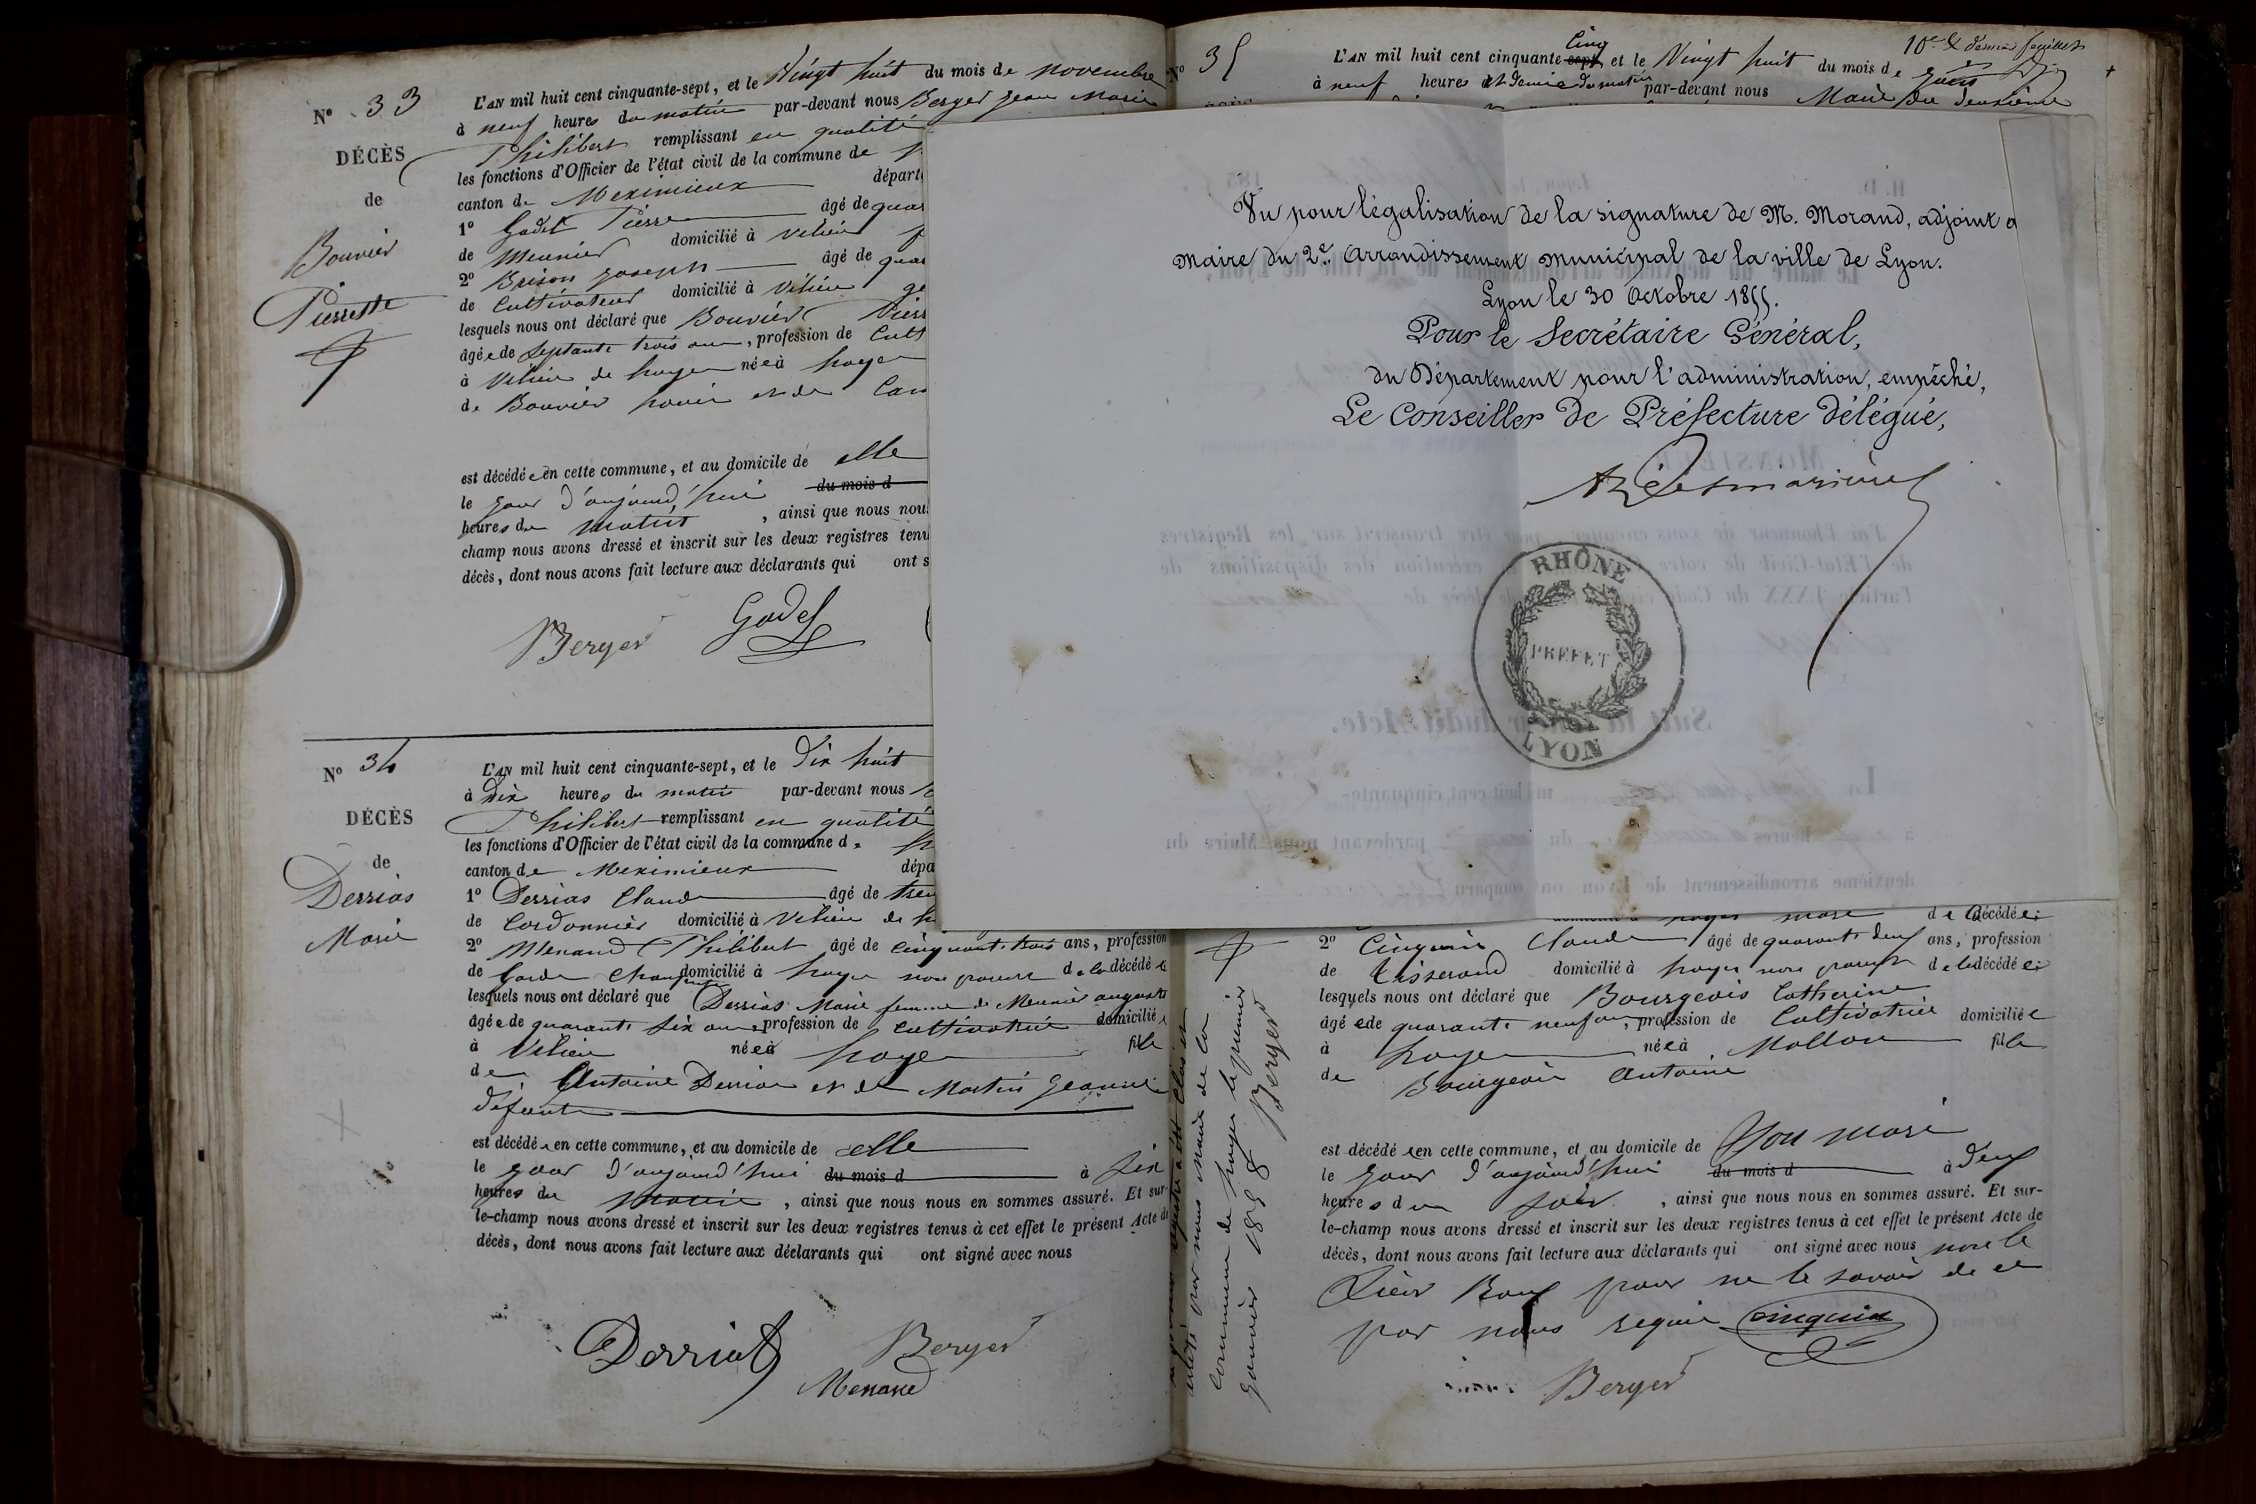 N° 33
DÉCÈS
de
Bouvier
Pierrette
L'AN mil huit cent cinquante-sept, et le Vingt huit du mois de novembre
à neuf heures du matin par-devant nous Berger Jean Marie
Philibert remplissant en qualité
les fonctions d'Officier de l'état civil de la commune de
canton de Meximieux départ
1° Godet Pierre âgé de quar
de Meunier domicilié à Velieu
2° Brison Joseph âgé de quar
de Cultivateur domicilié à Velieu
lesquels nous ont déclaré que Bouvier Pierr
âgée de septante trois ans, profession de Cult
à Velieu de hoyer née à hoyer
de Bouvier et de
est décédée en cette commune, et au domicile de elle
le jour d'aujourd'hui du mois d
heures du matin, ainsi que nous nou
champ nous avons dressé et inscrit sur les deux registres tenu
décès, dont nous avons fait lecture aux déclarants qui ont s
Berger Godet
N° 34
DÉCÈS
de
Derrias
Marie
L'AN mil huit cent cinquante-sept, et le Dix huit
à Dix heures du matin par-devant nous
Philibert remplissant en qualité
les fonctions d'Officier de l'état civil de la commune d
canton de Meximieux dépa
1° Derrias Claude âgé de tren
de Cordonnier domicilié à Velieu de
2° Menand Philibert âgé de cinquante trois ans, profession
de Garde Champêtre domicilié à hoyer non parent de la décédée
lesquels nous ont déclaré que Derrias Marie femme de Meunier auguste
âgée de quarante six ans, profession de cultivatrice domiciliée
à Velieu née à hoyer fille
de Antoine Derrias et de Martin Jeanne
défunte
est décédée en cette commune, et au domicile de elle
le jour d'aujourd'hui du mois d à six
heures du matin, ainsi que nous nous en sommes assuré. Et sur-
le-champ nous avons dressé et inscrit sur les deux registres tenus à cet effet le présent Acte de
décès, dont nous avons fait lecture aux déclarants qui ont signé avec nous
Derrias Berger
Menand
par nous maire de la
commune de hoyer le premier
Janvier 1858 Berger
N° 35
10e & dernier feuillet
L'AN mil huit cent cinquante cinq sept et le Vingt huit du mois de Juin
à neuf heures et demie du matin par-devant nous Maire du deuxième
Vu pour légalisation de la signature de M. Morand, adjoint a
Maire du 2e Arrondissement municipal de la ville de Lyon.
Lyon le 30 Octobre 1855.
Pour le Secrétaire Général,
du Département pour l'administration, empêché,
Le Conseiller de Préfecture délégué,
RHÔNE
PREFET
LYON
hoyer mari de la décédée
2° Cinquin Claude âgé de quarante deux ans, profession
de tisserand domicilié à hoyer non parent de la décédée
lesquels nous ont déclaré que Bourgeois Catherine
âgée de quarante neuf ans, profession de Cultivatrice domiciliée
à hoyer née à Mollon fille
de Bourgeois Antoine
est décédée en cette commune, et au domicile de Son mari
le jour d'aujourd'hui du mois d à deux
heures du soir, ainsi que nous nous en sommes assuré. Et sur-
le-champ nous avons dressé et inscrit sur les deux registres tenus à cet effet le présent Acte de
décès, dont nous avons fait lecture aux déclarants qui ont signé avec nous non le
Sieur pour ne le savoir de ce
par nous requis Cinquin
Berger